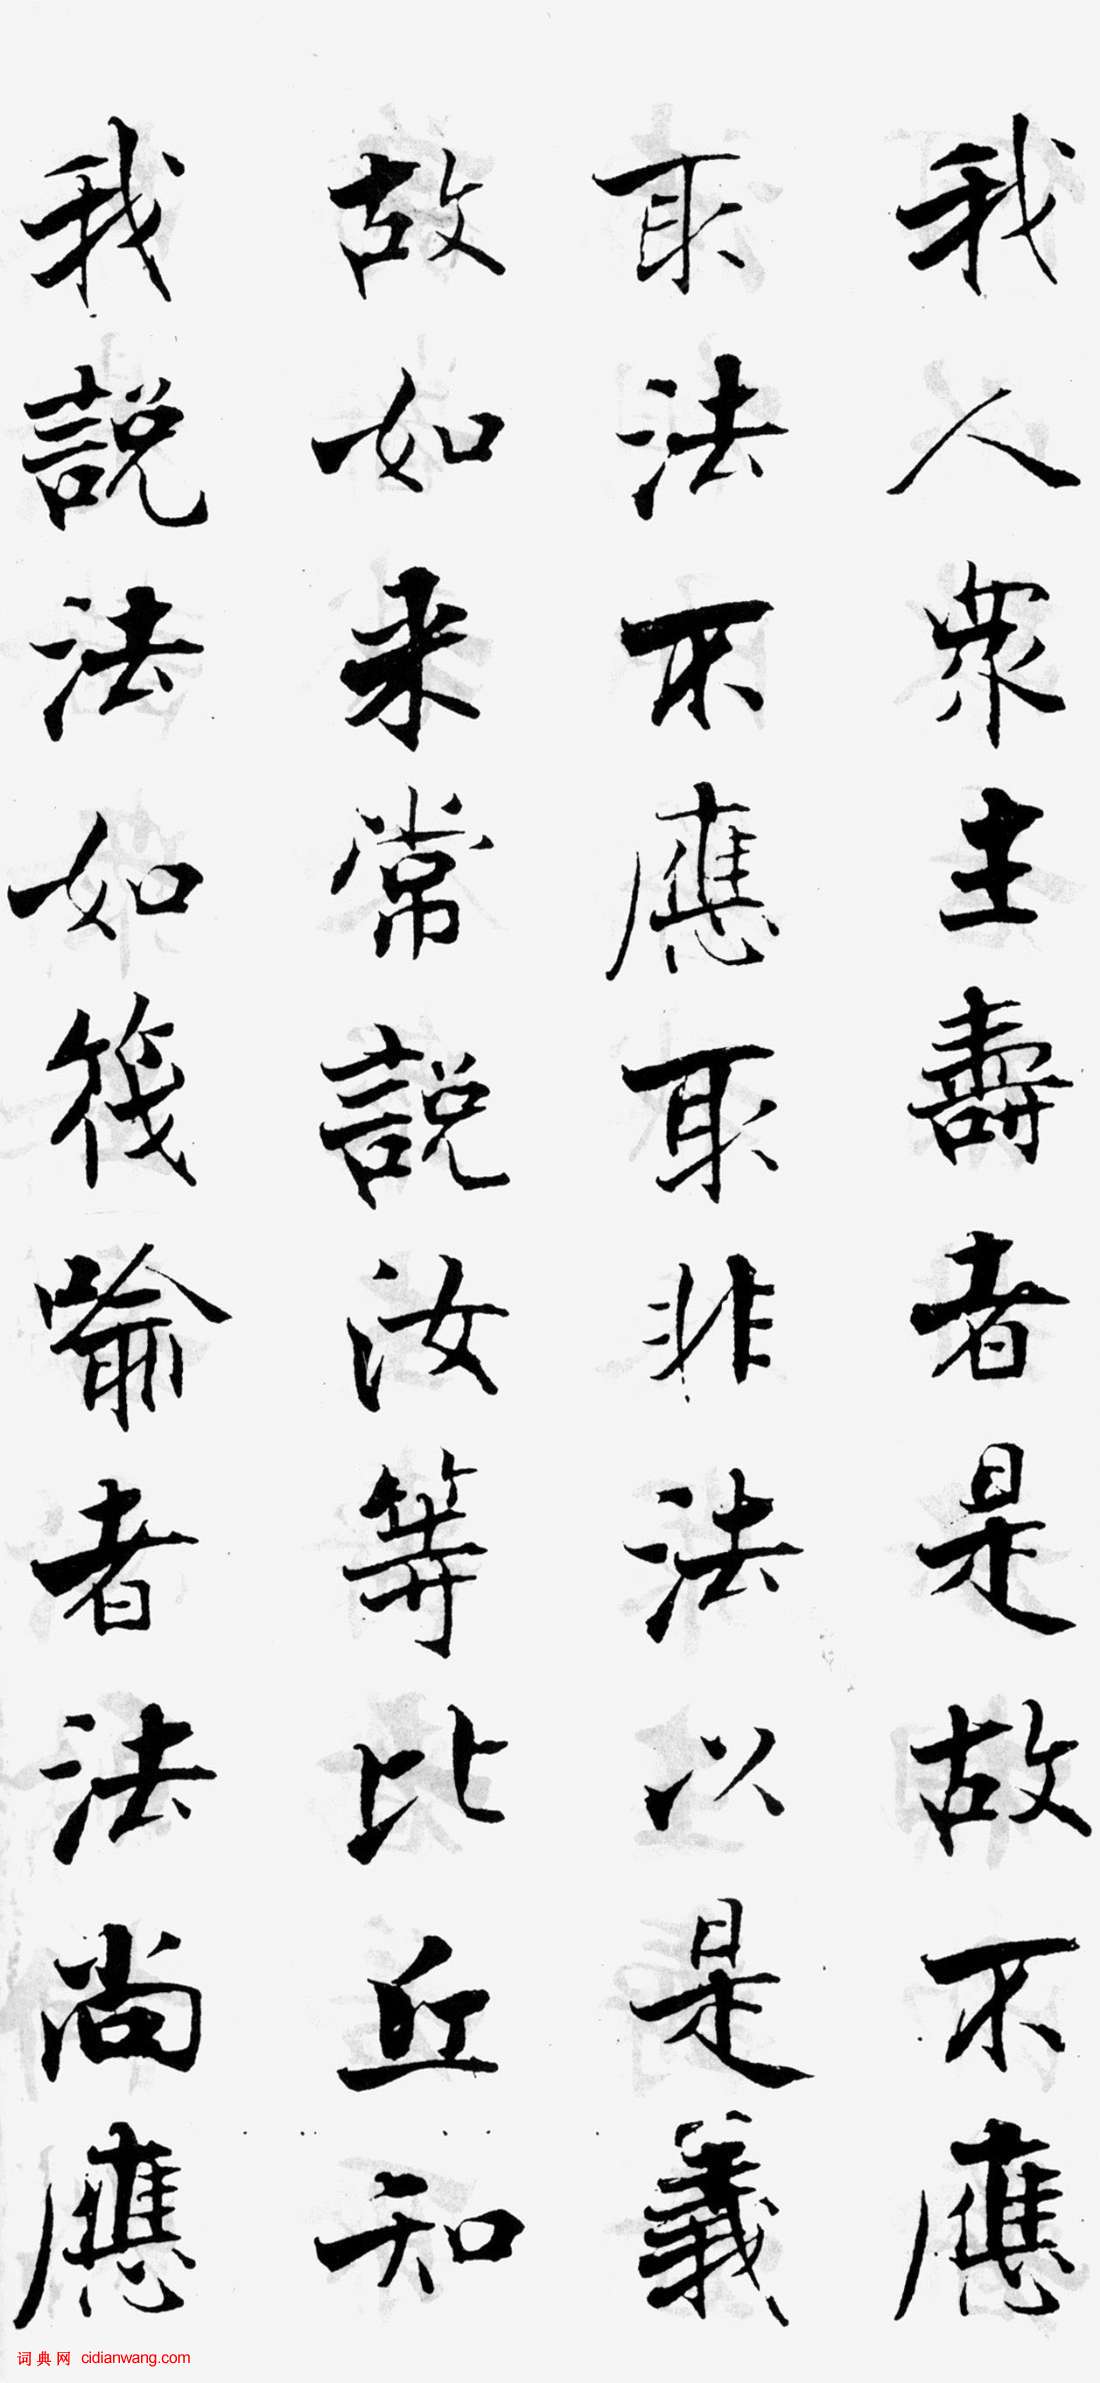 我人衆主壽者是故不應
取法不應取非法以是義
故如来常說汝等比丘知
我說法如筏喻者法尚應
词典网 cidianwang.com